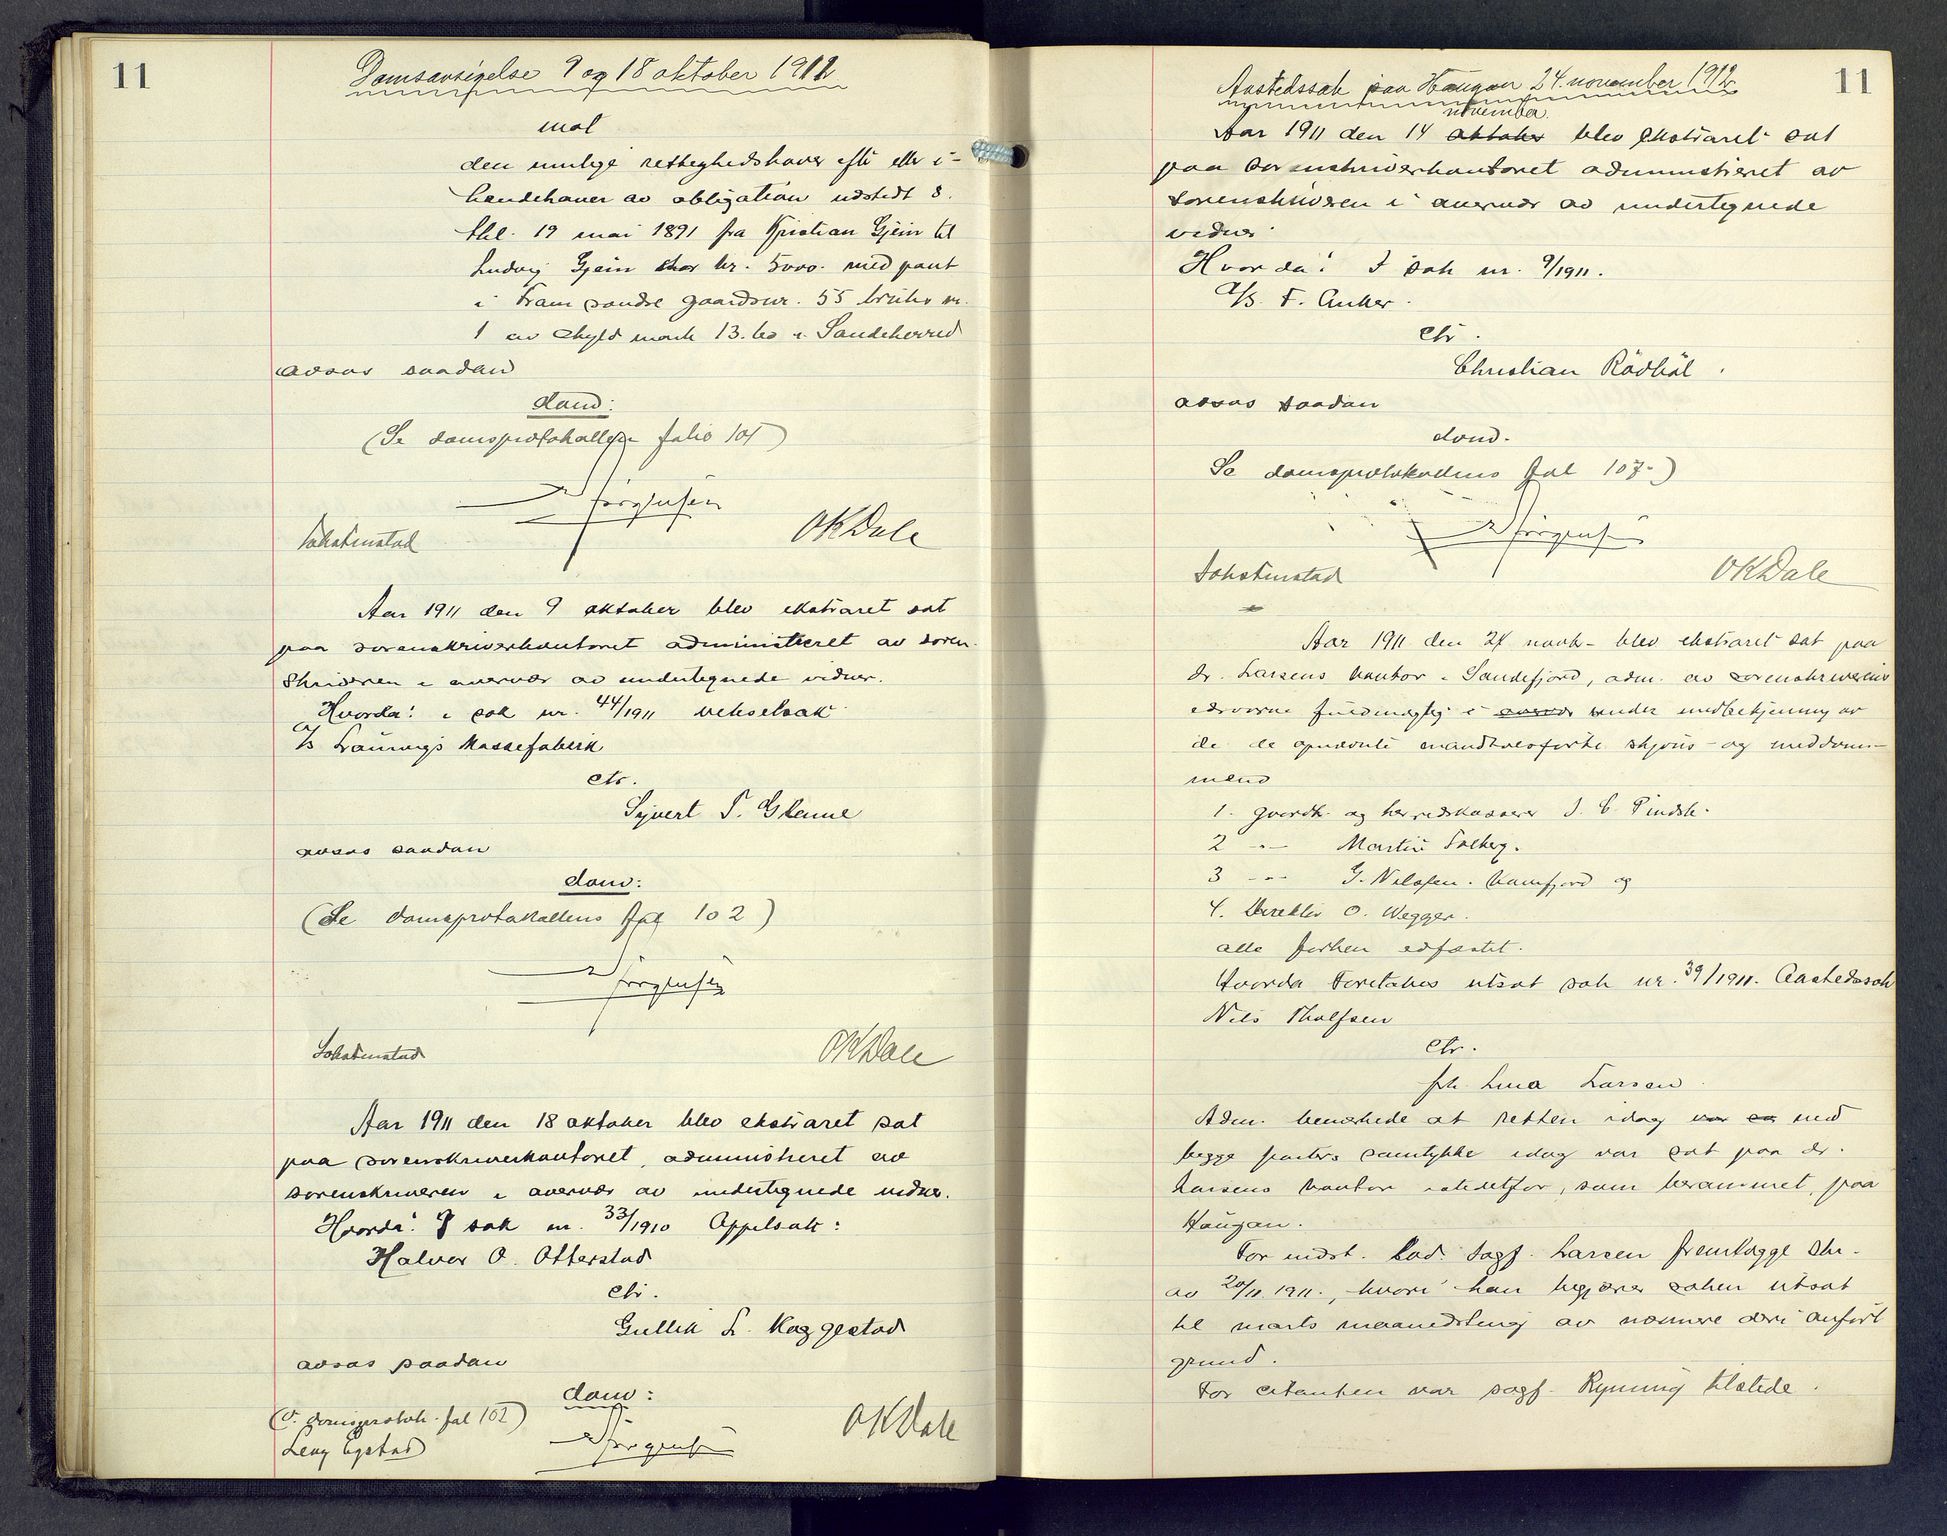 11
Domsavsigelse 9 og 18 oktober 1912
mot
den mulige rettighedshaver efter eller i-
hændehaver av obligation utstedt 8.
thl. 19 mai 1891 fra Kristian Gjein til
Ludvig Gjein stor kr. 5000. med pant
i Fram søndre gaardsnr. 55 bruks nr.
1 av skyld mark 13.60 i Sandeherred
avsas saadan
dom:
(Se domsprotokollen folio 101)
Jørgensen
OKDale
Aar 1911 den 9 oktober blev ekstraret sat
paa sorenskriverkontoret administreret av soren-
skriveren i overvær av undertegnede vidner.
Hvorda: i sak nr. 44/1911 vekselsak
A/S Laurvigs Massefabrik
ctr.
Syvert T. Glenne
avsas saadan
dom:
(Se domsprotokollens fol 102)
Jørgensen
OKDale
Aar 1911 den 18 oktober blev ekstraret sat
paa sorenskriverkontoret, administreret av
sorenskriveren i overvær av undertegnede vidner.
Hvorda: I sak nr. 33/1910 Appelsak:
Halvor O. Otterstad
ctr.
Gullik L. Kaggestad
avsas saadan
dom:
(v. domsprotok. fol 102)
OKDale
Egstad
Jørgensen
11
Aastedssak paa Haugan 24. november 1912
november
Aar 1911 den 14 oktober blev ekstraret sat
paa sorenskriverkontoret administreret av
sorenskriveren i overvær av undertegnede
vidner
Hvorda: I sak nr. 9/1911.
A/S. F. Anker.
ctr.
Christian Rödböl.
avsas saadan
dom.
Se domsprotokollens fol 107.)
Jørgensen
OKDale
Aar 1911 den 24 novb. blev ekstraret sat paa
dr. Larsens kontor i Sandefjord, adm. av sorenskriverens
edsvorne fuldmægtig i overvær under medbetjening av
de opnævnte mandtalsførte skjøns- og meddoms-
mænd
1. gaardb. og herredskasserer J. C. Pindsle.
2 -"- Martin Solberg.
3 -"- G. Nilssen. Kamfjord og
4. Direktør O. Wegger.
alle forhen edfæstet.
Hvorda foretages utsat sak nr. 39/1911. Aastedssak
Nils Tholfsen
ctr.
frk. Lina Larsen
Adm. bemerkede at retten idag var sa med
begge parters samtykke idag var sat paa dr.
Larsens kontor istedetfor, som berammet, paa
Haugan.
For indst. Lod. sagf. Larsen fremlagge skr.
av 20/11 1911., hvori han begjærer saken utsat
til marts maanedsting av nærmere deri anført
grund.
For citanten var sagf. Ryning tilstede.